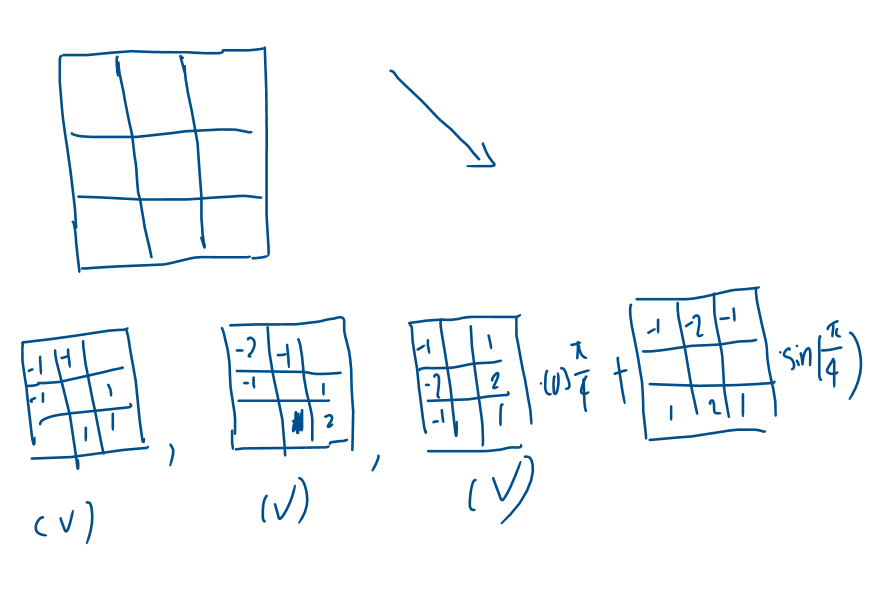 -1 -1
-1 1
1 1
,
-2 -1
-1 1
2
,
-1 1
-2 2
-1 1
· cos π/4 +
-1 -2 -1
1 2 1
· sin(π/4)
(V) (V) (V)